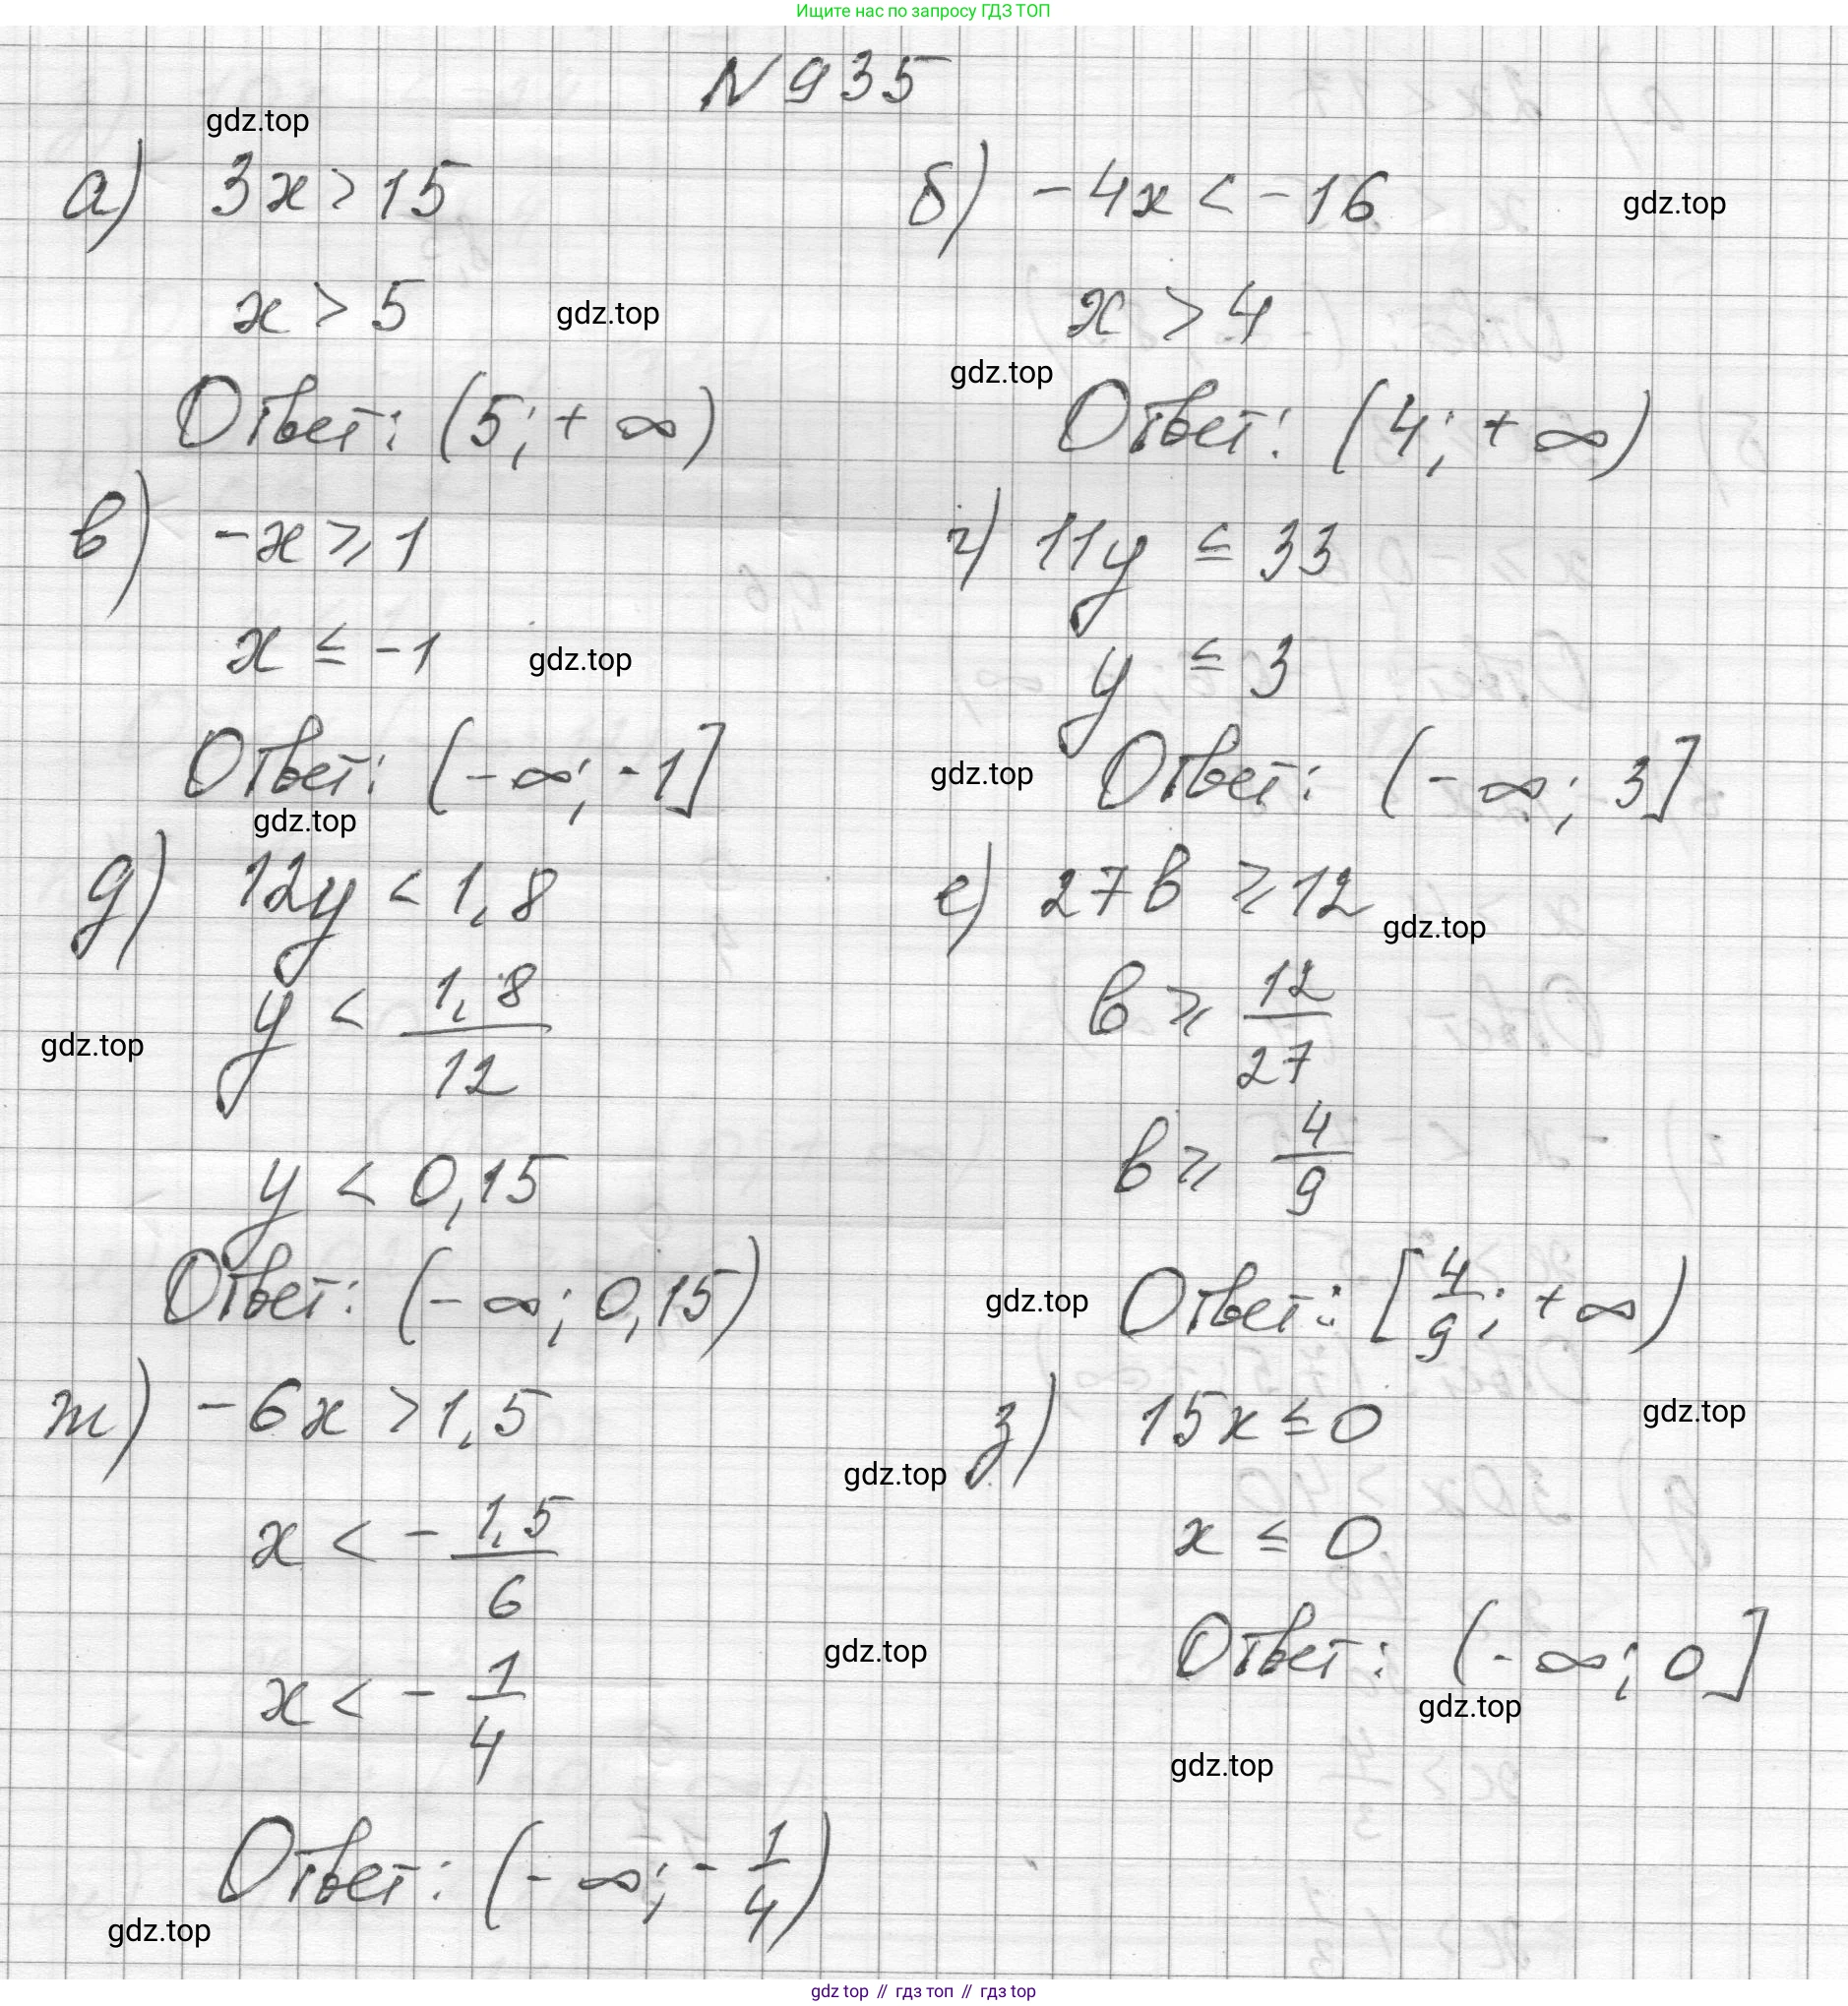 Ищите нас по запросу ГДЗ ТОП
N 935
gdz.top
а) 3x > 15
x > 5
gdz.top
Ответ: (5; + ∞)
б) -4x < -16
gdz.top
x > 4
gdz.top
Ответ: (4; + ∞)
в) -x ⩾ 1
x ≤ -1
gdz.top
Ответ: (-∞; -1]
gdz.top
г) 11y ≤ 33
y ≤ 3
gdz.top
Ответ: (-∞; 3]
д) 12y < 1,8
y < 1,8/12
gdz.top
y < 0,15
Ответ: (-∞; 0,15)
е) 27в ⩾ 12
gdz.top
в ⩾ 12/27
в ⩾ 4/9
gdz.top
Ответ: [4/9; + ∞)
ж) -6x > 1,5
x < - 1,5/6
x < - 1/4
Ответ: (-∞; - 1/4)
gdz.top
з) 15x ≤ 0
gdz.top
gdz.top
x ≤ 0
gdz.top
Ответ: (-∞; 0]
gdz.top
gdz.top
gdz top // гдз топ // gdz top